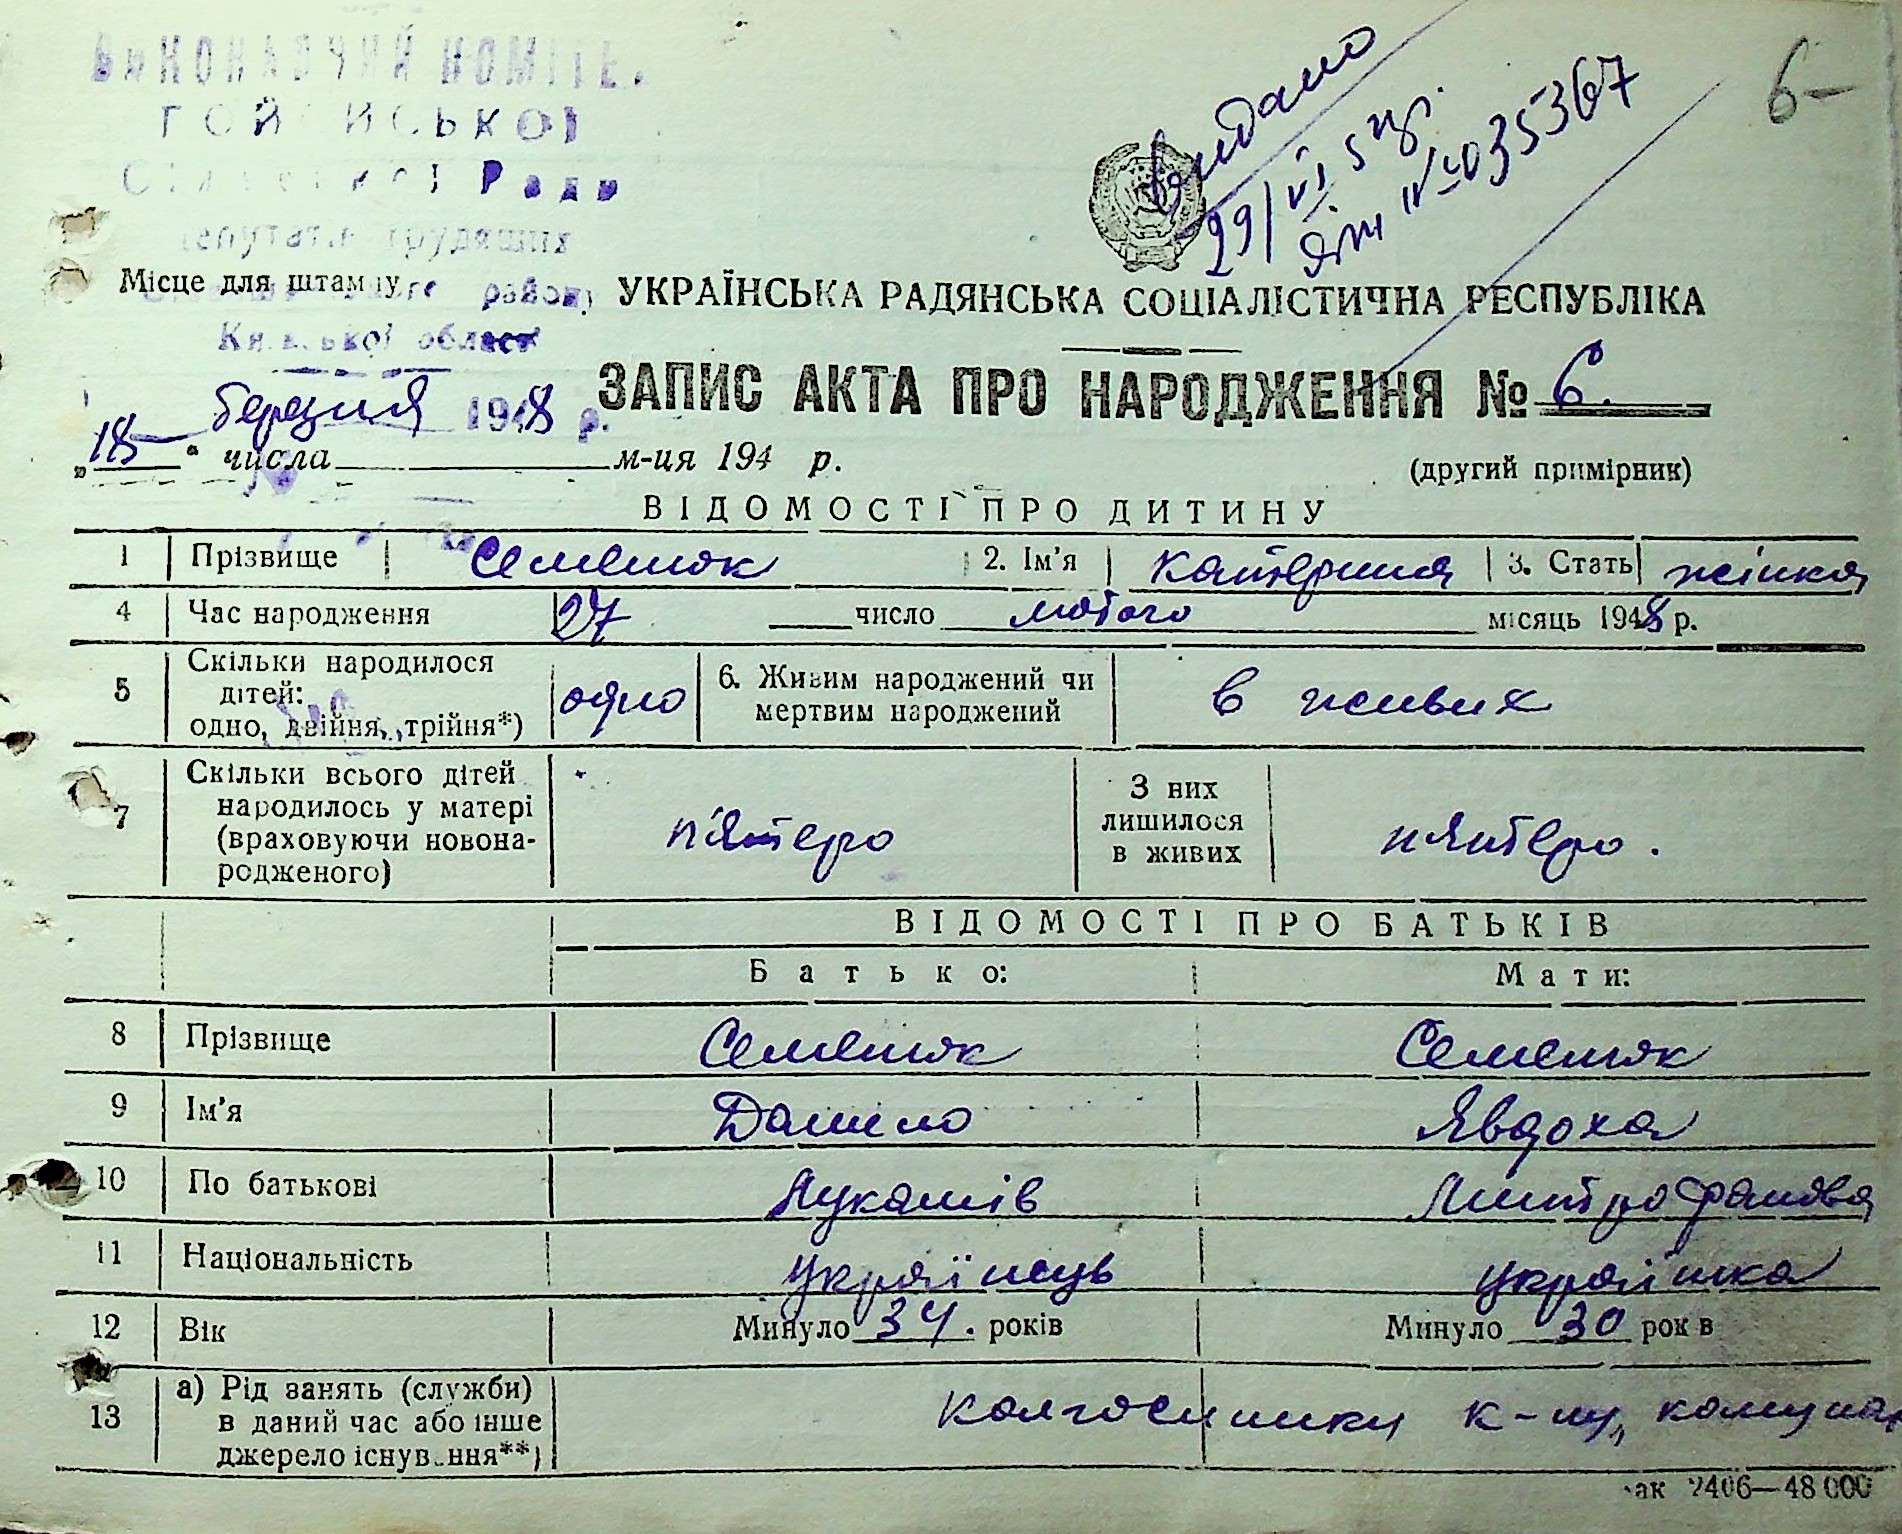 Видано
29/VI 5 цр.
ЯЩ № 035367
6-
Ради
депутатів трудящих
району
Київської області
Місце для штампу
УКРАЇНСЬКА РАДЯНСЬКА СОЦІАЛІСТИЧНА РЕСПУБЛІКА
ЗАПИС АКТА ПРО НАРОДЖЕННЯ № 6.
березня 1948 р.
„18“ числа м-ця 194 р.
(другий примірник)
ВІДОМОСТІ ПРО ДИТИНУ
1 Прізвище Семенюк 2. Ім'я Катерина 3. Стать жінка
4 Час народження 27 число лютого місяць 1948 р.
5 Скільки народилося дітей: одно, двійня, трійня*) одно 6. Живим народжений чи мертвим народжений в живих
7 Скільки всього дітей народилось у матері (враховуючи новонародженого) п'ятеро З них лишилося в живих п'ятеро.
ВІДОМОСТІ ПРО БАТЬКІВ
Батько: Мати:
8 Прізвище Семенюк Семенюк
9 Ім'я Данило Явдоха
10 По батькові Лукашів Митрофанова
11 Національність українець українка
12 Вік Минуло 34. років Минуло 30 років
13 а) Рід занять (служби) в даний час або інше джерело існування**) колгоспники к-пу „комунар
ак 2406—48 000